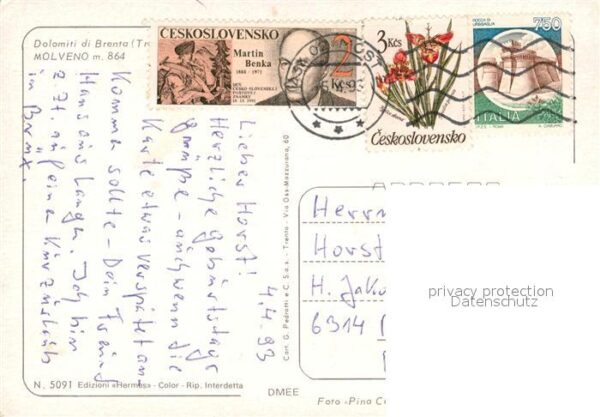 Dolomiti di Brenta (Tr
MOLVENO m. 864
ČESKOSLOVENSKO
Martin
Benka
1888 - 1971
2
3 Kčs
Československo
ROCCA DI
URBISAGLIA
750
ITALIA
4.4.93
Lieber Horst!
Herzliche Geburtstags-
grüße - auch wenn die
Karte etwas verspätet an-
komma sollte - Dein Freund
Hans aus Langa. Ich bin
z.Zt. auf eina Kurzurlaub
in Brünx
Cart. G. Pedrotti e C. S.a.s. - Trento - Via Oss-Mazzurana, 60
Herrn
Horst
H. Jako
6314
privacy protection
Datenschutz
N. 5091 Edizioni «Hermes» - Color - Rip. Interdetta
DMEE
Foto «Pina Ce